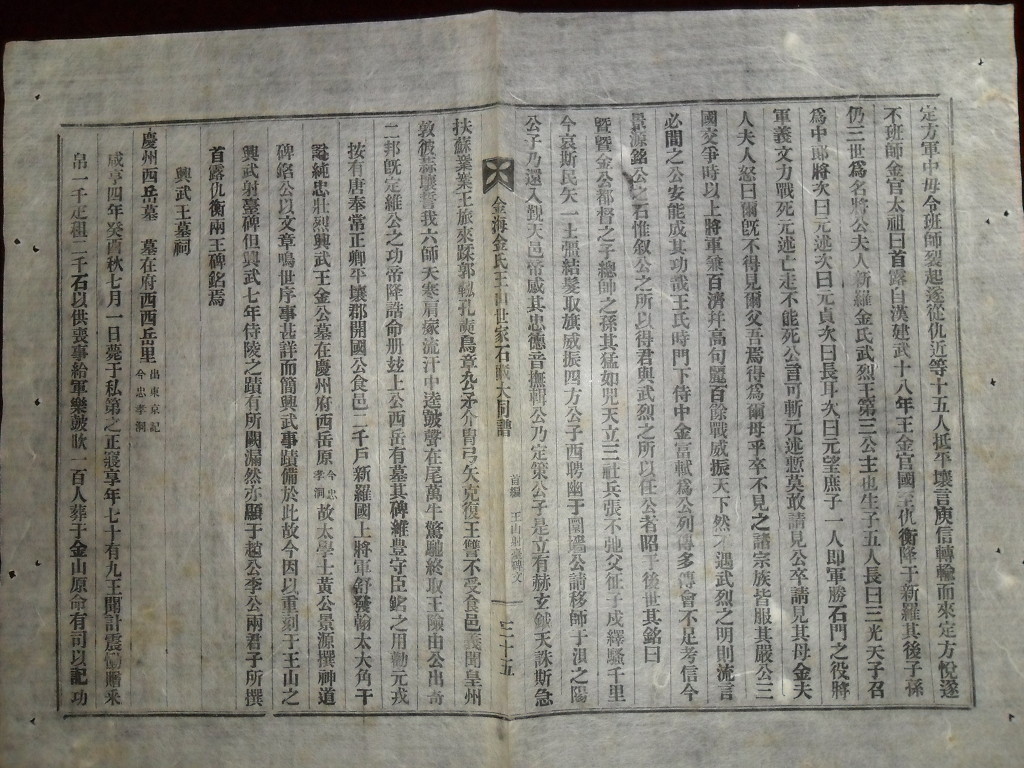 定方軍中毋令班師裂起遂從仇近等十五人抵平壤言庾信轉輸而來定方悅遂
不班師金官太祖曰首露自漢建武十八年王金官國三仇衡降于新羅其後子孫
仍三世爲名將公夫人新羅金氏武烈王第三公主也生子五人長曰三光天子召
爲中郎將次曰元述次曰元貞次曰長耳次曰元望庶子一人即軍勝石門之役將
軍義文力戰死元述亡走不能死公言可斬元述慙莫敢請見公卒請見其母金夫
人夫人怒曰爾旣不得見爾父吾焉得爲爾母乎卒不見之諸宗族皆服其嚴公三
國交爭時以上將軍兼百濟幷高句麗百餘戰威振天下然不遇武烈之明則流言
必間之公安能成其功哉王氏時門下侍中金富軾爲公列傳多傳會不足考信今
景源銘公之石惟叙公之所以得君與武烈之所以任公者昭于後世其銘曰
曁曁金公都督之子總師之孫其猛如兕天立三社兵張不弛父征子戍繹騷千里
今哀斯民矢一土彊結髮取旗威振四方公子西聘幽于圜墻公請移師于浿之陽
公子乃還入覲天邑帝感其忠德音撫輯公乃定策公子是立有赫玄鉞天誅斯急
扶蘇業業王旅來蹂郭輗孔黃鳥章九矛介冑弓矢克復王讐不受食邑義聞皇州
敦彼蒜壤督我六師天寒肩豕流汗中逵皷聲在尾萬牛驚馳終取王險由公出奇
二邦旣定維公之功帝降誥命册玆上公西岳有墓其碑維豊守臣銘之用勸元戎
按有唐奉常正卿平壤郡開國公食邑二千戶新羅國上將軍舒發翰太大角干
謚純忠壯烈興武王金公墓在慶州府西岳原今忠孝洞故太學士黃公景源撰神道
碑銘公以文章鳴世序事甚詳而簡興武事蹟備於此故今因以重刻于王山之
興武射臺碑但興武七年侍陵之蹟有所闕漏然亦顯于趙公李公兩君子所撰
首露仇衡兩王碑銘焉
興武王墓祠
慶州西岳墓 墓在府西西岳里出東京記今忠孝洞
咸亨四年癸酉秋七月一日薨于私第之正寢享年七十有九王聞訃震慟贈釆
帛一千疋租二千石以供喪事給軍樂皷吹一百人葬于金山原命有司以記功
金海金氏王山世家石瞮大同譜
首編 王山射臺碑文
二十五